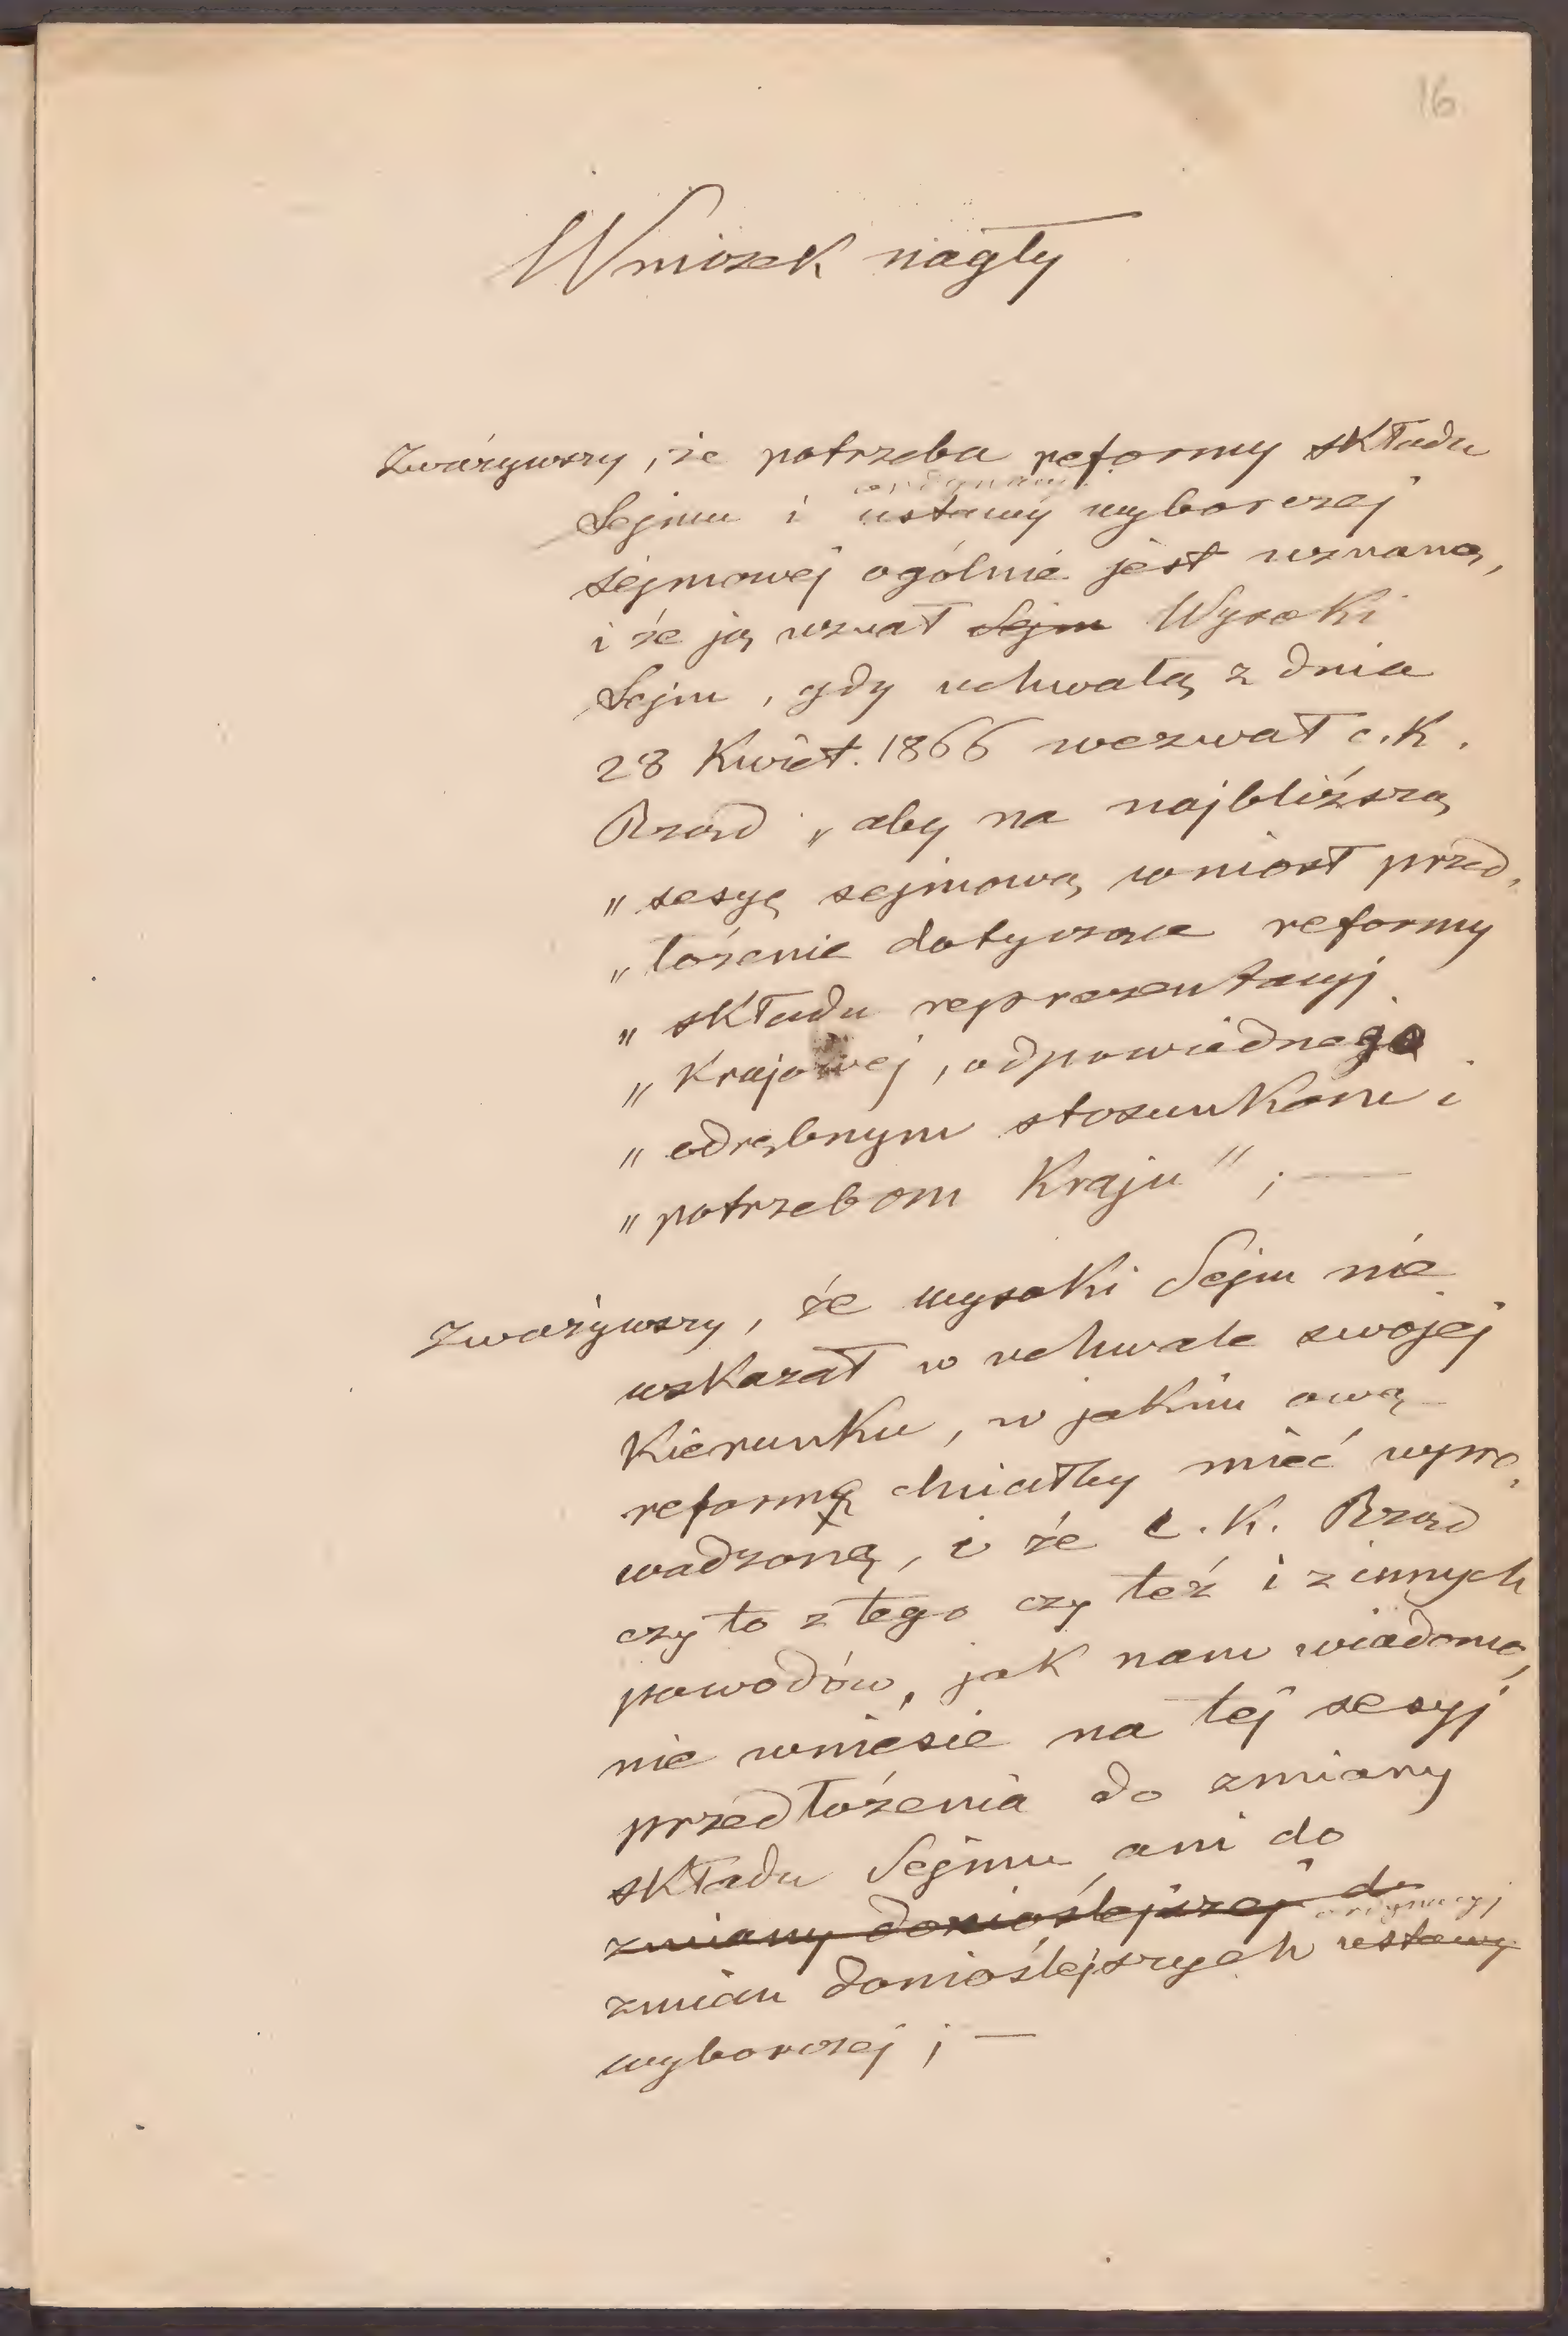 16
Wniosek nagły
Zważywszy, że potrzeba reformy składu
ordynacyi
Sejmu i ustawy wyborczej
sejmowej ogólnie jest uznaną,
i że ją uznał Sejm Wysoki
Sejm, gdy uchwałą z dnia
28 Kwiet. 1866 wezwał c. K.
Rząd „aby na najbliższą
„sesyę sejmową wniósł przed„
„łożenie dotyczące reformy
„składu reprezentacyj
„Krajowej, odpowiednego
„odrębnym stosunkom i
„potrzebom Kraju"; —
Zważywszy, że wysoki Sejm nie
wskazał w uchwale swojej
Kierunku, w jakim ową
reformę chciałby mieć wypro„
wadzoną, i że c. K. Rząd
czy to z tego czy też i z innych
powodów, jak nam wiadomo,
nie wniesie na tej sesyj
przedłożenia do zmiany
składu Sejmu, ani do
zmiany donioślejszej do
ordynacyj
zmian donioślejszych ustawy
wyborczej; —